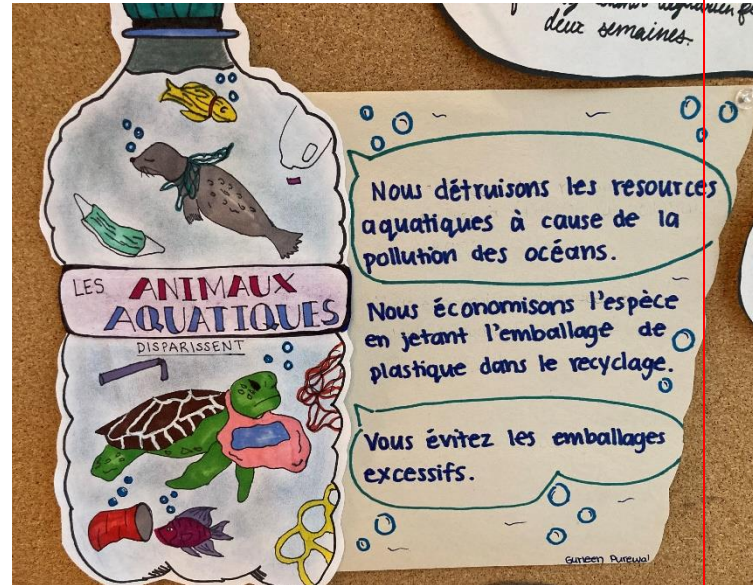 deux semaines.
LES ANIMAUX
AQUATIQUES
DISPARISSENT
Nous détruisons les resources
aquatiques à cause de la
pollution des océans.
Nous économisons l'espèce
en jetant l'emballage de
plastique dans le recyclage.
Vous évitez les emballages
excessifs.
Guneen Purewal